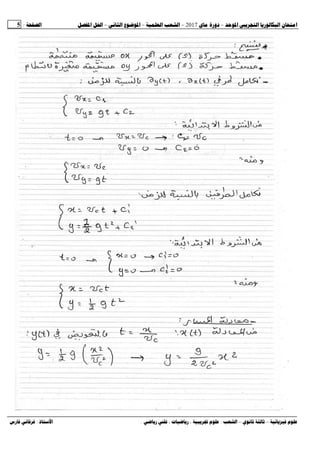 امتحان البكالوريا التجريبي الموحد - دورة ماي 2017 - الشعب العلمية - الموضوع الثاني - الحل المفصل
الصفحة 5
• مسقط حركة (S) على المحور ox مستقيمة منتظمة
• مسقط حركة (S) على المحور oy مستقيمة متغيرة بانتظام
- نكامل طرفي ax(t) ، ay(t) بالنسبة للزمن :
{ Vx = C₁
Vy = gt + C₂
من الشروط الابتدائية :
t=0 → Vx = Vc → C₁ = Vc
Vy = 0 → C₂ = 0
ومنه :
{ Vx = Vc
Vy = gt
نكامل الطرفين بالنسبة للزمن :
{ x = Vc t + C₁'
y = ½ gt² + C₂'
من الشروط الابتدائية :
t=0 → { x=0 → C₁'=0
y=0 → C₂'=0
ومنه :
{ x = Vc t
y = ½ g t²
- معادلة المسار :
من المعادلة x(t) : t = x/Vc بالتعويض في y(t) :
y = ½ g (x²/Vc²) → y = g/2Vc² x²
علوم فيزيائية - ثالثة ثانوي - الشعب : علوم تجريبية - رياضيات - تقني رياضي
الأستاذ : فرقاني فارس